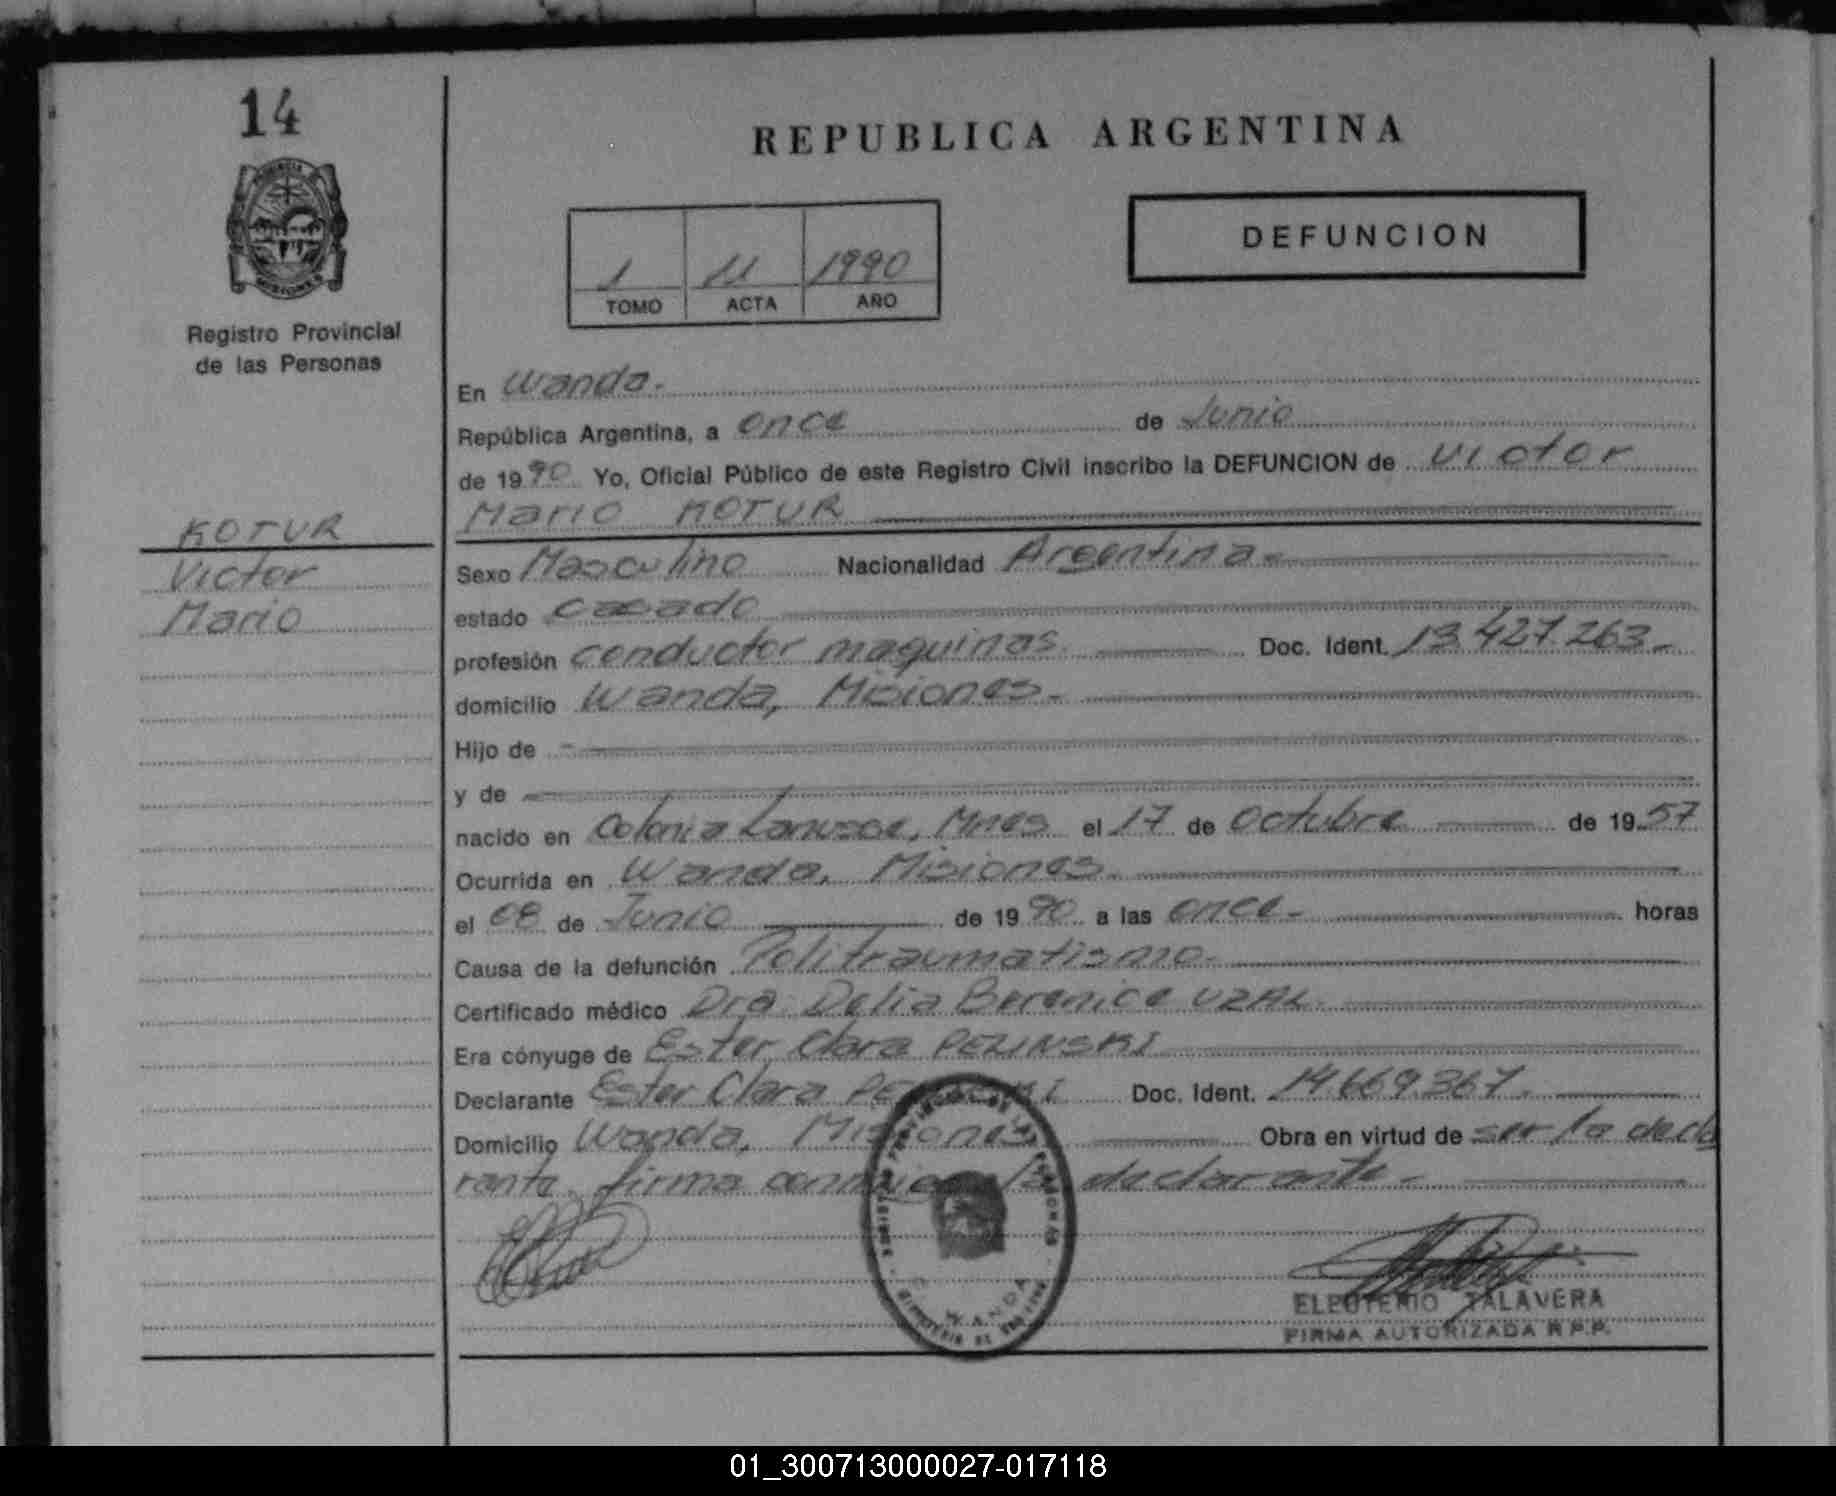 14
REPUBLICA ARGENTINA
DEFUNCION
1 11 1990
TOMO ACTA AÑO
Registro Provincial
de las Personas
En Wanda.
República Argentina, a once de Junio
de 1990 Yo, Oficial Público de este Registro Civil inscribo la DEFUNCION de Victor
Mario KOTUR
KOTUR
Victor
Mario
Sexo Masculino Nacionalidad Argentina.
estado casado
profesión conductor maquinas Doc. Ident. 13.427.263.-
domicilio Wanda, Misiones.-
Hijo de -
y de
nacido en Colonia Lanusse, Mnes el 17 de Octubre de 1957
Ocurrida en Wanda, Misiones
el 08 de Junio de 1990 a las once.- horas
Causa de la defunción Politraumatismo.-
Certificado médico Dra. Delia Berenice UZAL
Era cónyuge de Ester Clara PEZINSKI
Declarante Ester Clara Doc. Ident. 14.669.367.
Domicilio Wanda, Misiones Obra en virtud de ser la decla
rante, firma conmigo la declarante.-
WANDA
ELEUTERIO TALAVERA
FIRMA AUTORIZADA R.P.P.
01_300713000027-017118